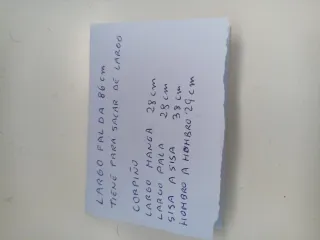 LARGO FALDA 86 cm
TIENE PARA SACAR DE LARGO
CORPIÑO
LARGO MANGA 28 cm
LARGO PALA 29 cm
SISA A SISA 38 cm
HOMBRO A HOMBRO 29 cm